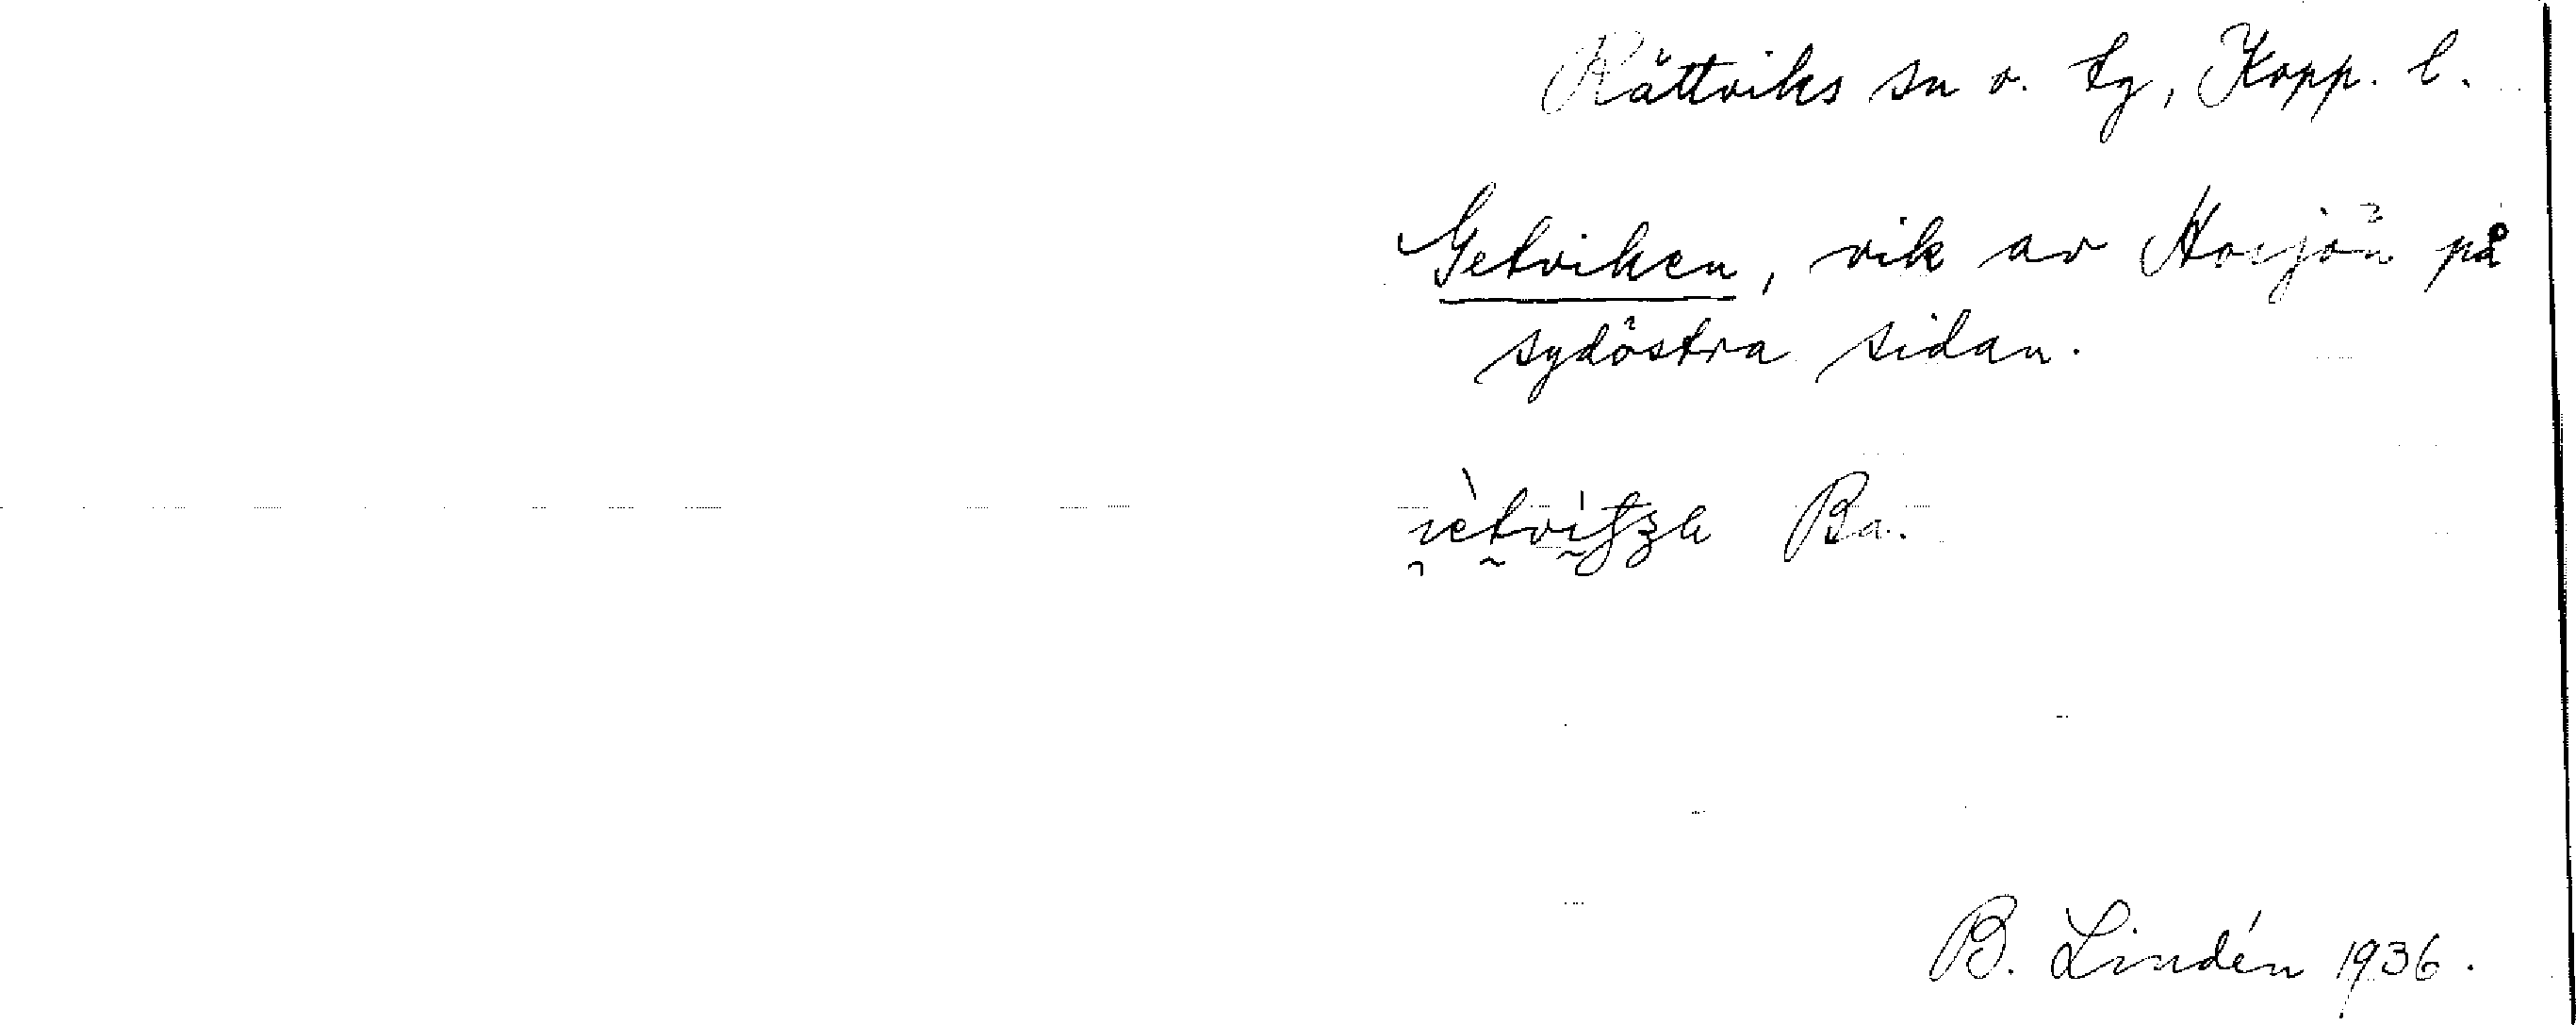 Rättviks sn o. tg, Kopp. l.
Getviken, vik av Hosjön på
sydöstra sidan.
Ba.
B. Lindén 1936.